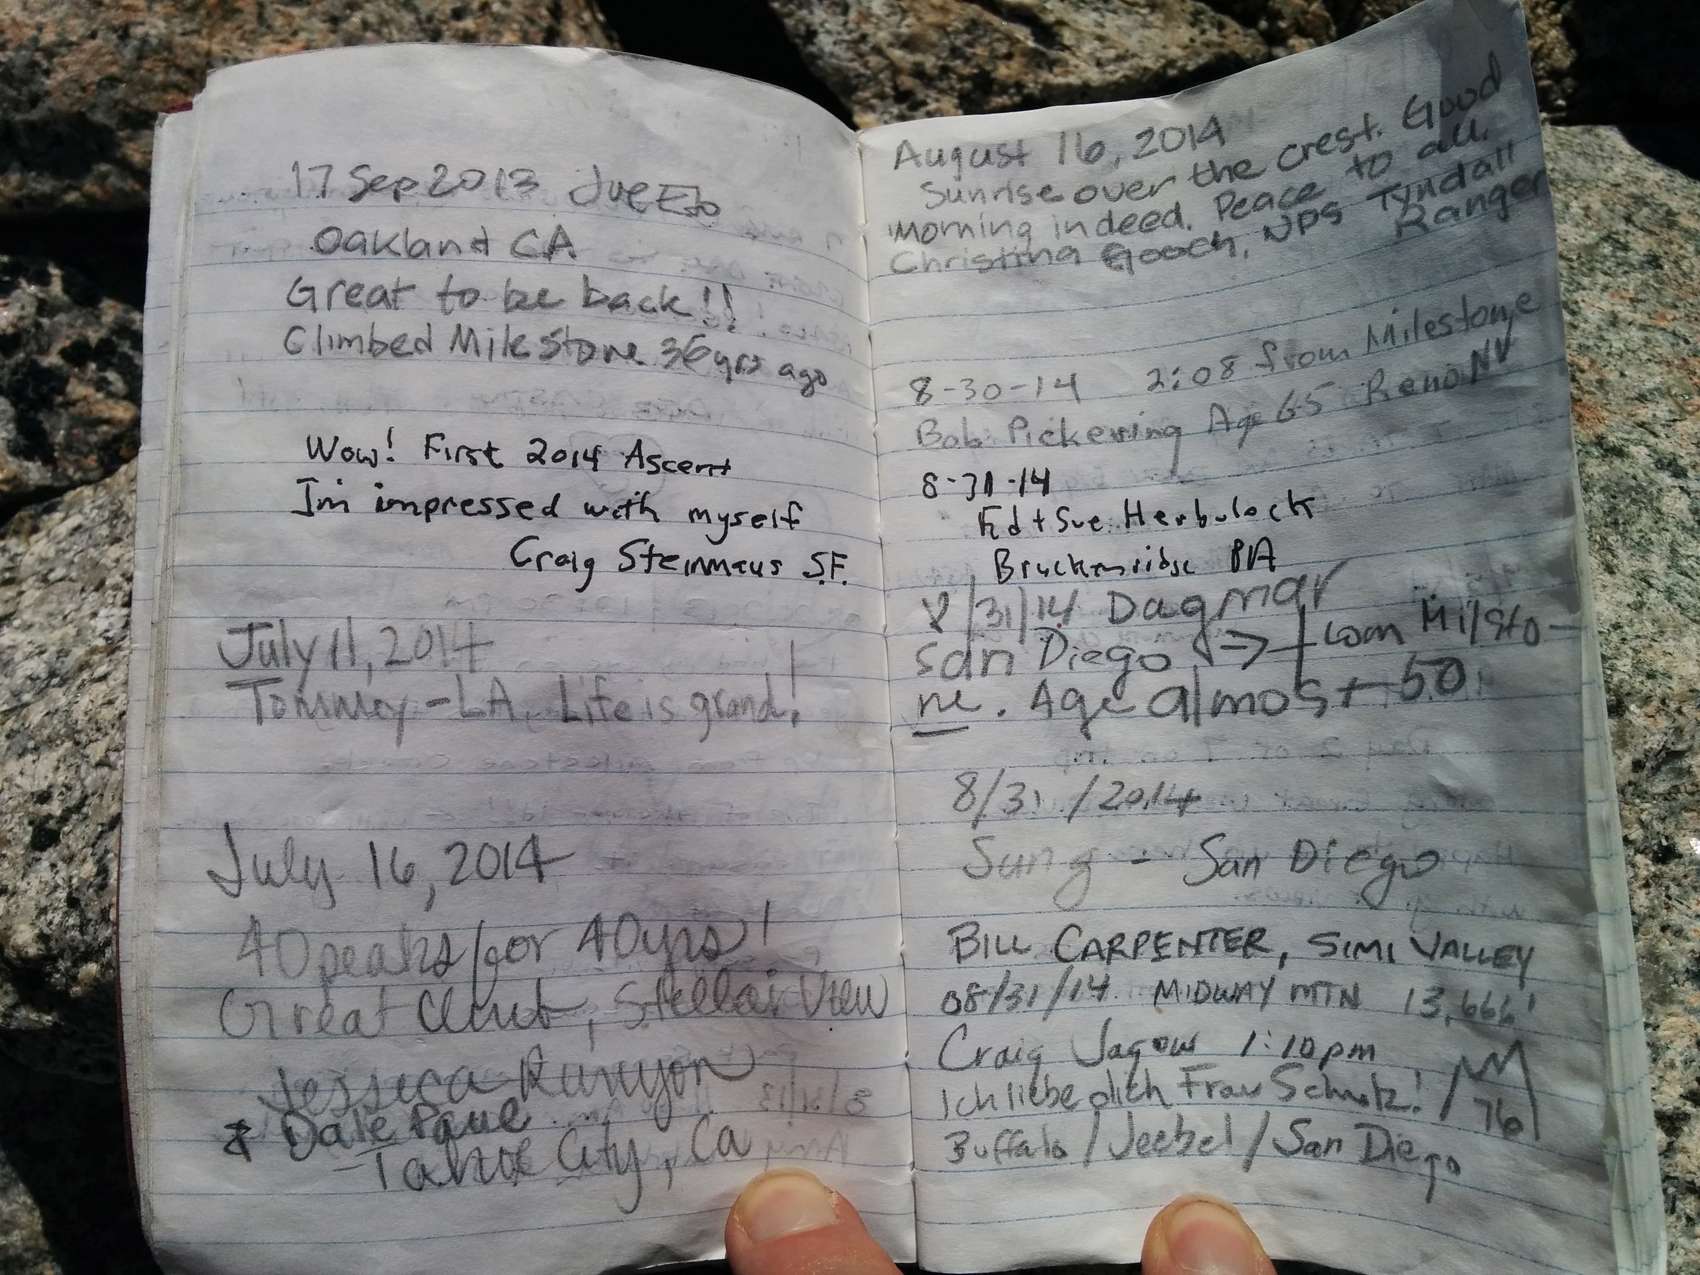 17 Sep 2013
Oakland CA
Great to be back!!
Climbed Milestone 36 yrs ago
Wow! First 2014 Ascent
I'm impressed with myself
Craig Steinmaus S.F.
July 11, 2014
Tommey - LA. Life is grand!
July 16, 2014
40 peaks for 40 yrs!
Great climb, Stellar View
Jessica Runyon
& Dale Paue
- Tahoe City, Ca
August 16, 2014
Sunrise over the crest. Good
morning indeed. Peace to all.
Christina Gooch, NPS Tyndall
Ranger
8-30-14 2:08 from Milestone
Bob Pickering Age 65 Reno NV
8-31-14
Ed + Sue Herbulock
Breckenridge
8/31/14 Dagmar
San Diego => from Milsto-
ne. Age almost 50
8/31/2014
Sung - San Diego
BILL CARPENTER, SIMI VALLEY
08/31/14 MIDWAY MTN 13,666'
Craig Jagow 1:10 pm
Ich liebe dich Frau Schmitz!
76
Buffalo / Jeebel / San Diego